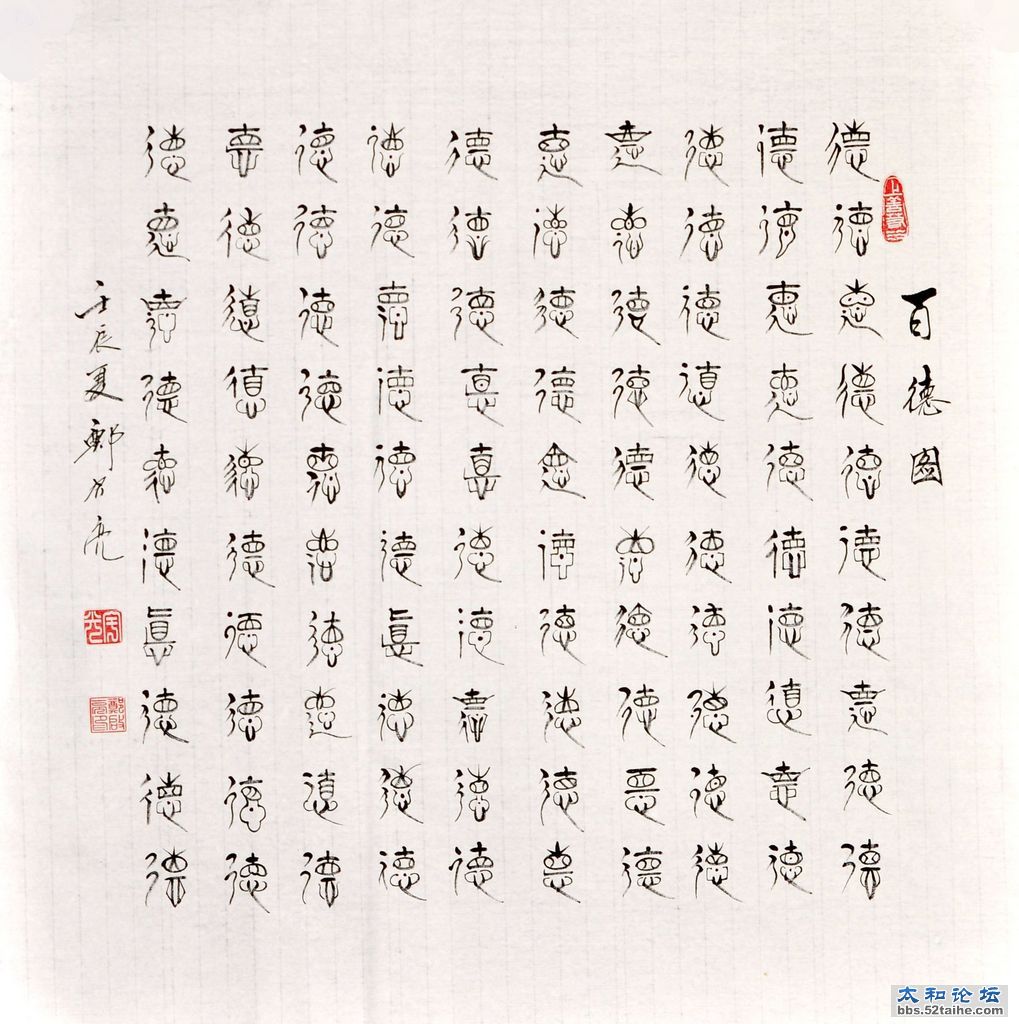 百德图
德德德德德德德德德德
德德德德德德德德德德
德德德德德德德德德德
德德德德德德德德德德
德德德德德德德德德德
德德德德德德德德德德
德德德德德德德德德德
德德德德德德德德德德
德德德德德德德德德德
德德德德德德德德德德
壬辰夏鄭
太和论坛
bbs.52taihe.com